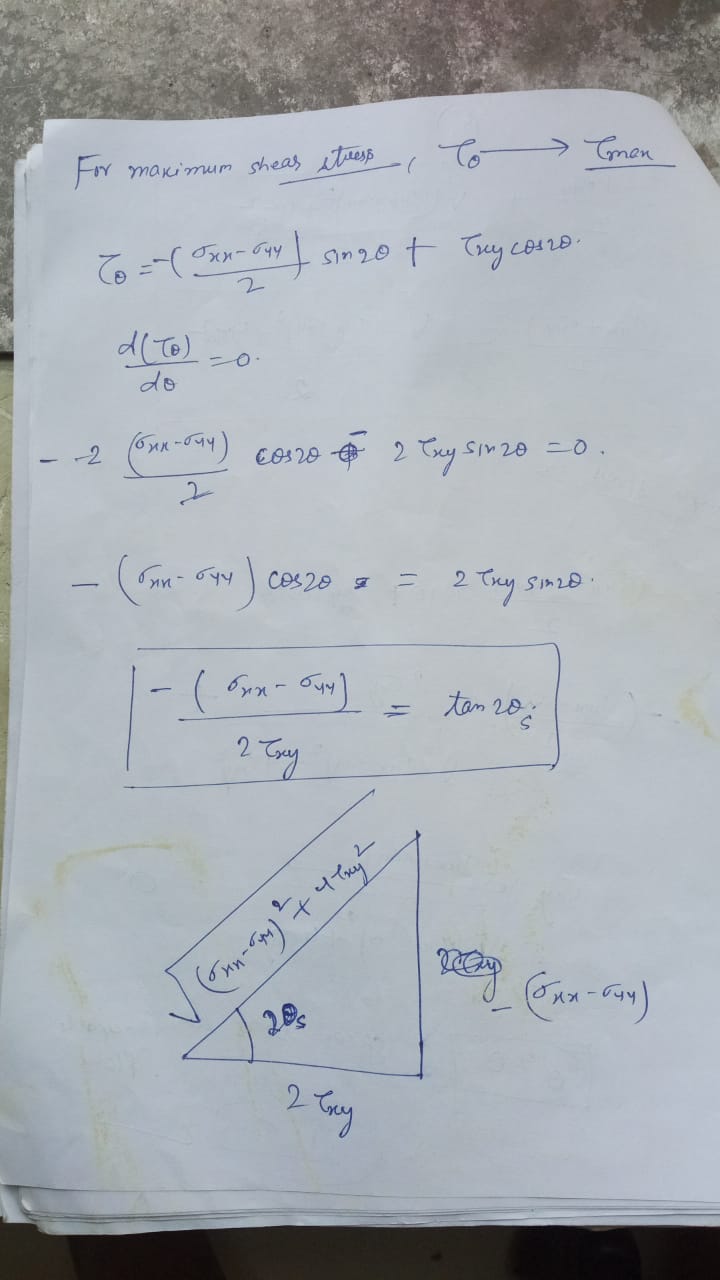 For maximum shear stress, τθ → τmax
τθ = -(σxx-σyy / 2) sin2θ + τxy cos2θ.
d(τθ)/dθ = 0.
- 2 (σxx-σyy)/2 cos2θ - 2 τxy sin2θ = 0.
- (σxx-σyy) cos2θ = 2 τxy sin2θ.
-(σxx-σyy) / 2τxy = tan2θs
√(σxx-σyy)² + 4τxy²
2θs
-(σxx-σyy)
2τxy